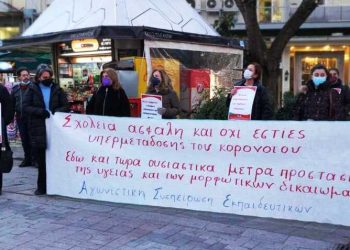 Σχολεια ασφαλη και οχι εστιες
υπερμεταδοσης του κορονοιου
Εδω και τωρα ουσιαστικα μετρα προστασι
της υγειας και των μορφωτικων δικαιωμα
Αγωνιστικη Συσπειρωση Εκπαιδευτικων